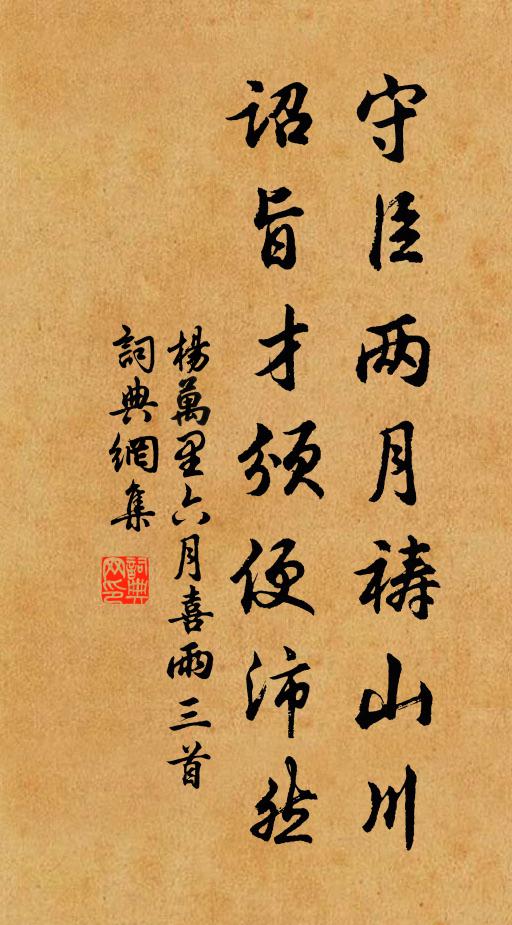 守臣两月祷山川
诏旨才颁便沛然
楊萬里六月喜雨三首
詞典網集
詞典
网印